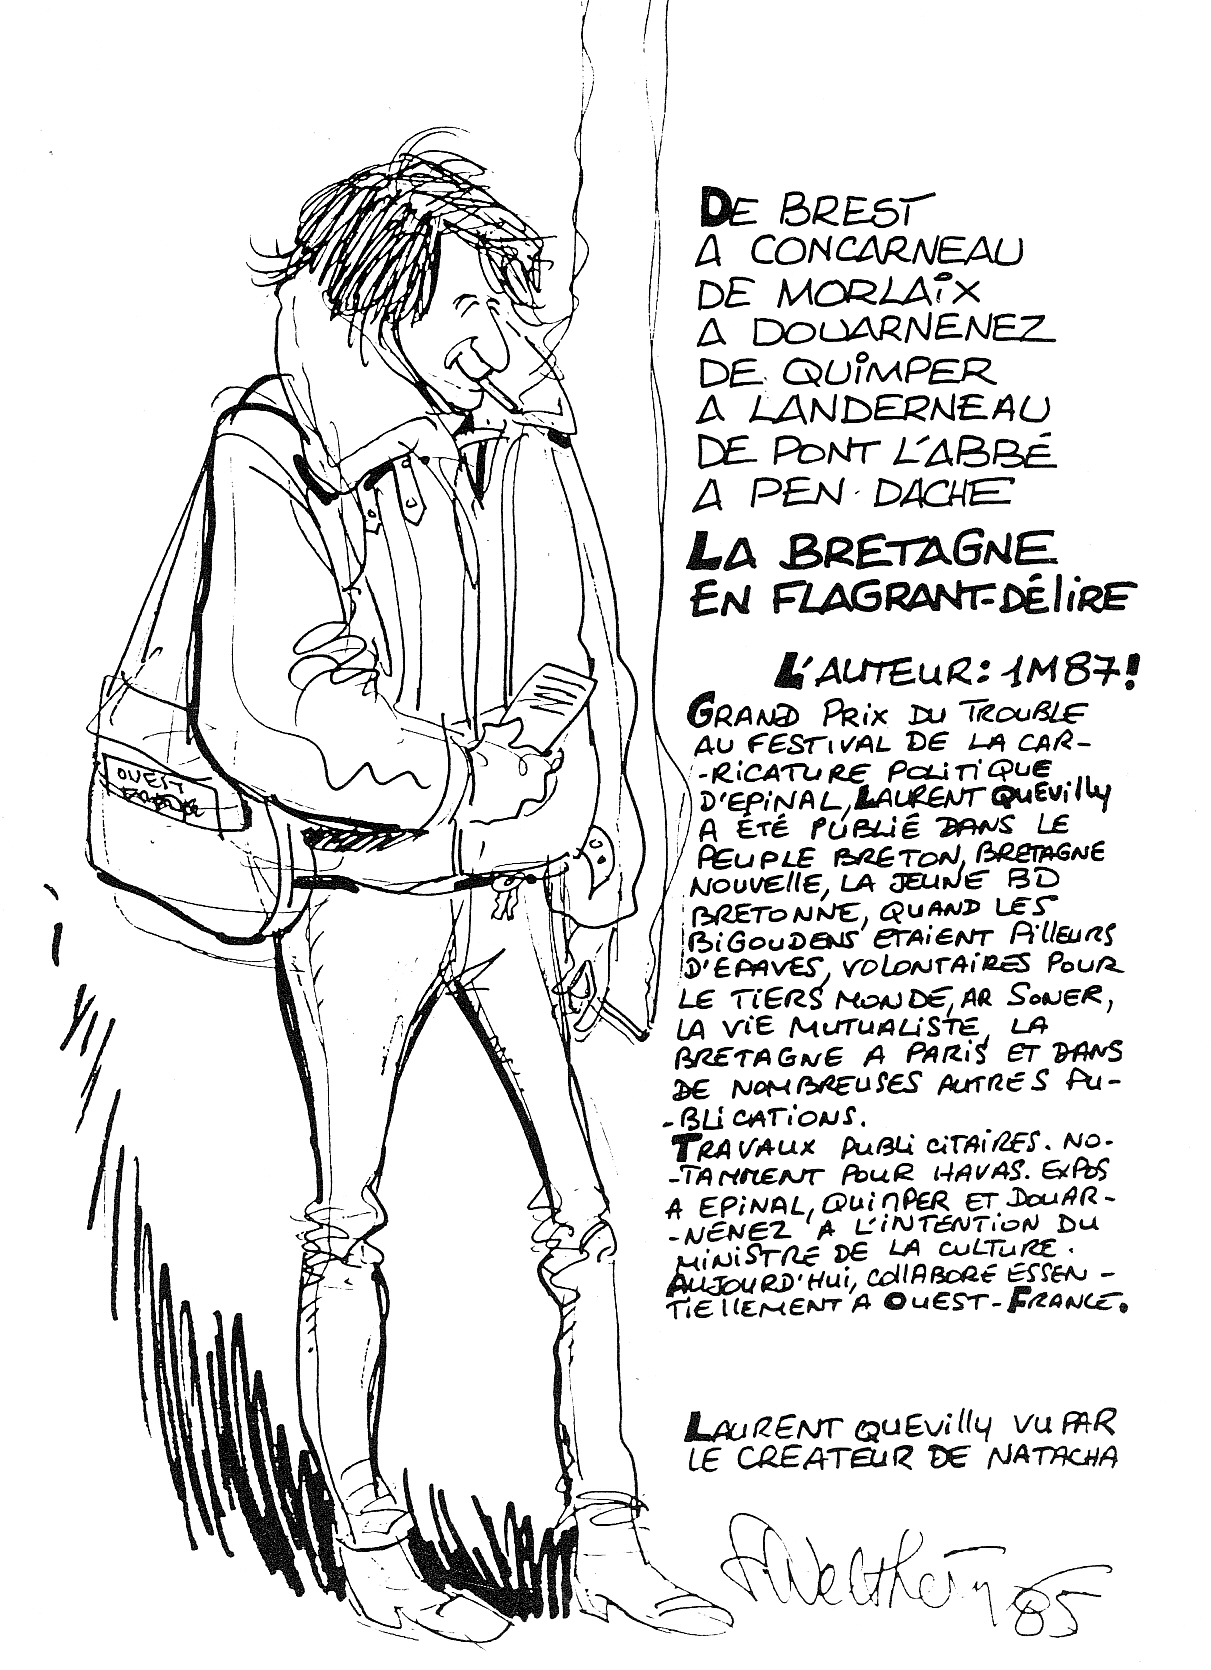 DE BREST
A CONCARNEAU
DE MORLAIX
A DOUARNENEZ
DE QUIMPER
A LANDERNEAU
DE PONT L'ABBÉ
A PEN-DACHE
LA BRETAGNE
EN FLAGRANT-DÉLIRE
L'AUTEUR: 1M87!
GRAND PRIX DU TROUBLE
AU FESTIVAL DE LA CAR-
-RICATURE POLITIQUE
D'EPINAL, LAURENT QUEVILLY
A ÉTÉ PUBLIÉ DANS LE
PEUPLE BRETON, BRETAGNE
NOUVELLE, LA JEUNE BD
BRETONNE, QUAND LES
BIGOUDENS ETAIENT PILLEURS
D'EPAVES, VOLONTAIRES POUR
LE TIERS MONDE, AR SONER,
LA VIE MUTUALISTE, LA
BRETAGNE A PARIS ET DANS
DE NOMBREUSES AUTRES PU-
-BLICATIONS.
TRAVAUX PUBLICITAIRES. NO-
-TAMMENT POUR HAVAS. EXPOS
A EPINAL, QUIMPER ET DOUAR-
-NENEZ A L'INTENTION DU
MINISTRE DE LA CULTURE.
AUJOURD'HUI, COLLABORE ESSEN-
TIELLEMENT A OUEST-FRANCE.
LAURENT QUEVILLY VU PAR
LE CREATEUR DE NATACHA
F. Walthéry 85
OUEST
FRANCE